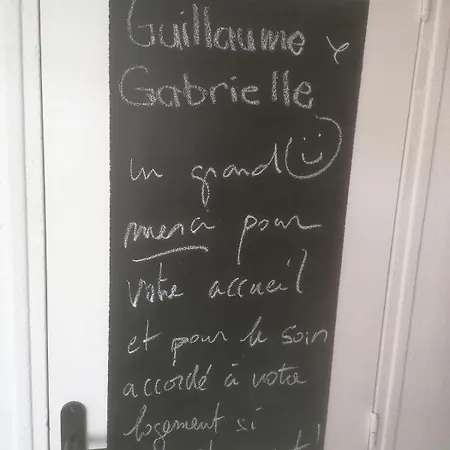 Guillaume &
Gabrielle
un grand
merci pour
votre accueil
et pour le soin
accordé à votre
logement si